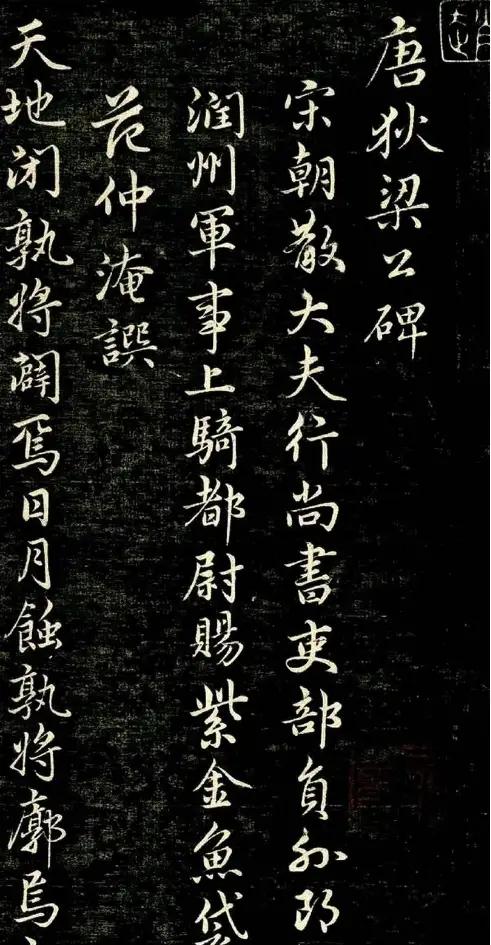 唐狄梁公碑
宋朝散大夫行尚書吏部員外郎
潤州軍事上騎都尉賜紫金魚袋
范仲淹譔
天地閉孰將闢焉日月蝕孰將廓焉